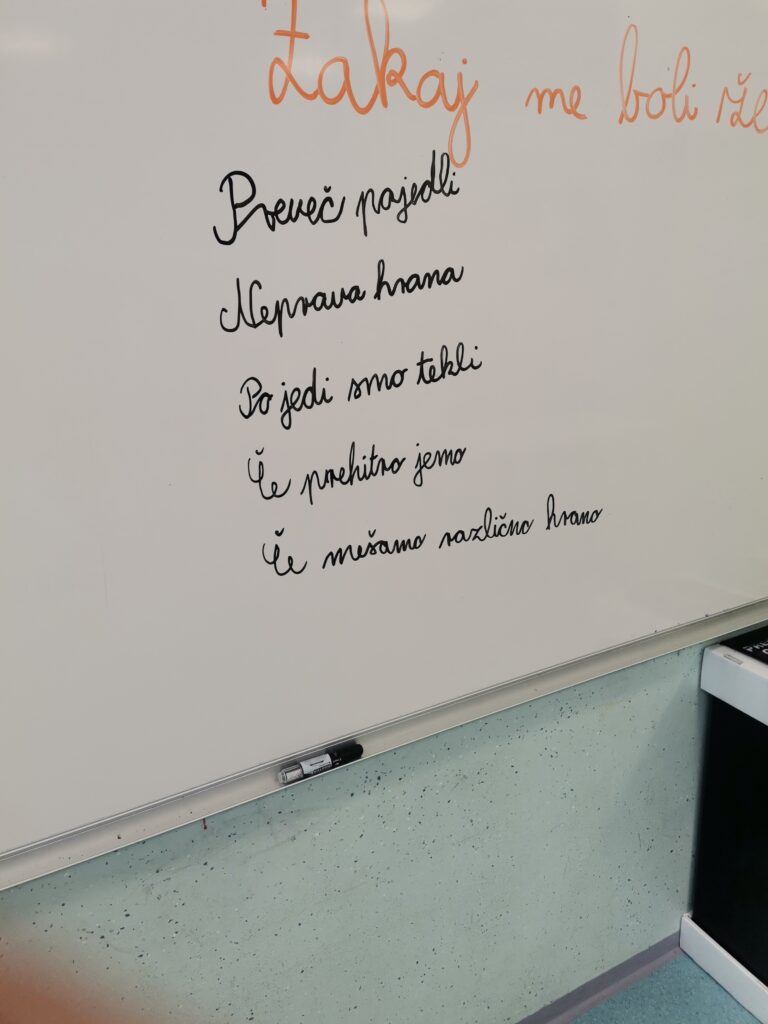 Zakaj me boli že
Preveč pojedli
Neprava hrana
Po jedi smo tekli
Če prehitro jemo
Če mešamo različno hrano